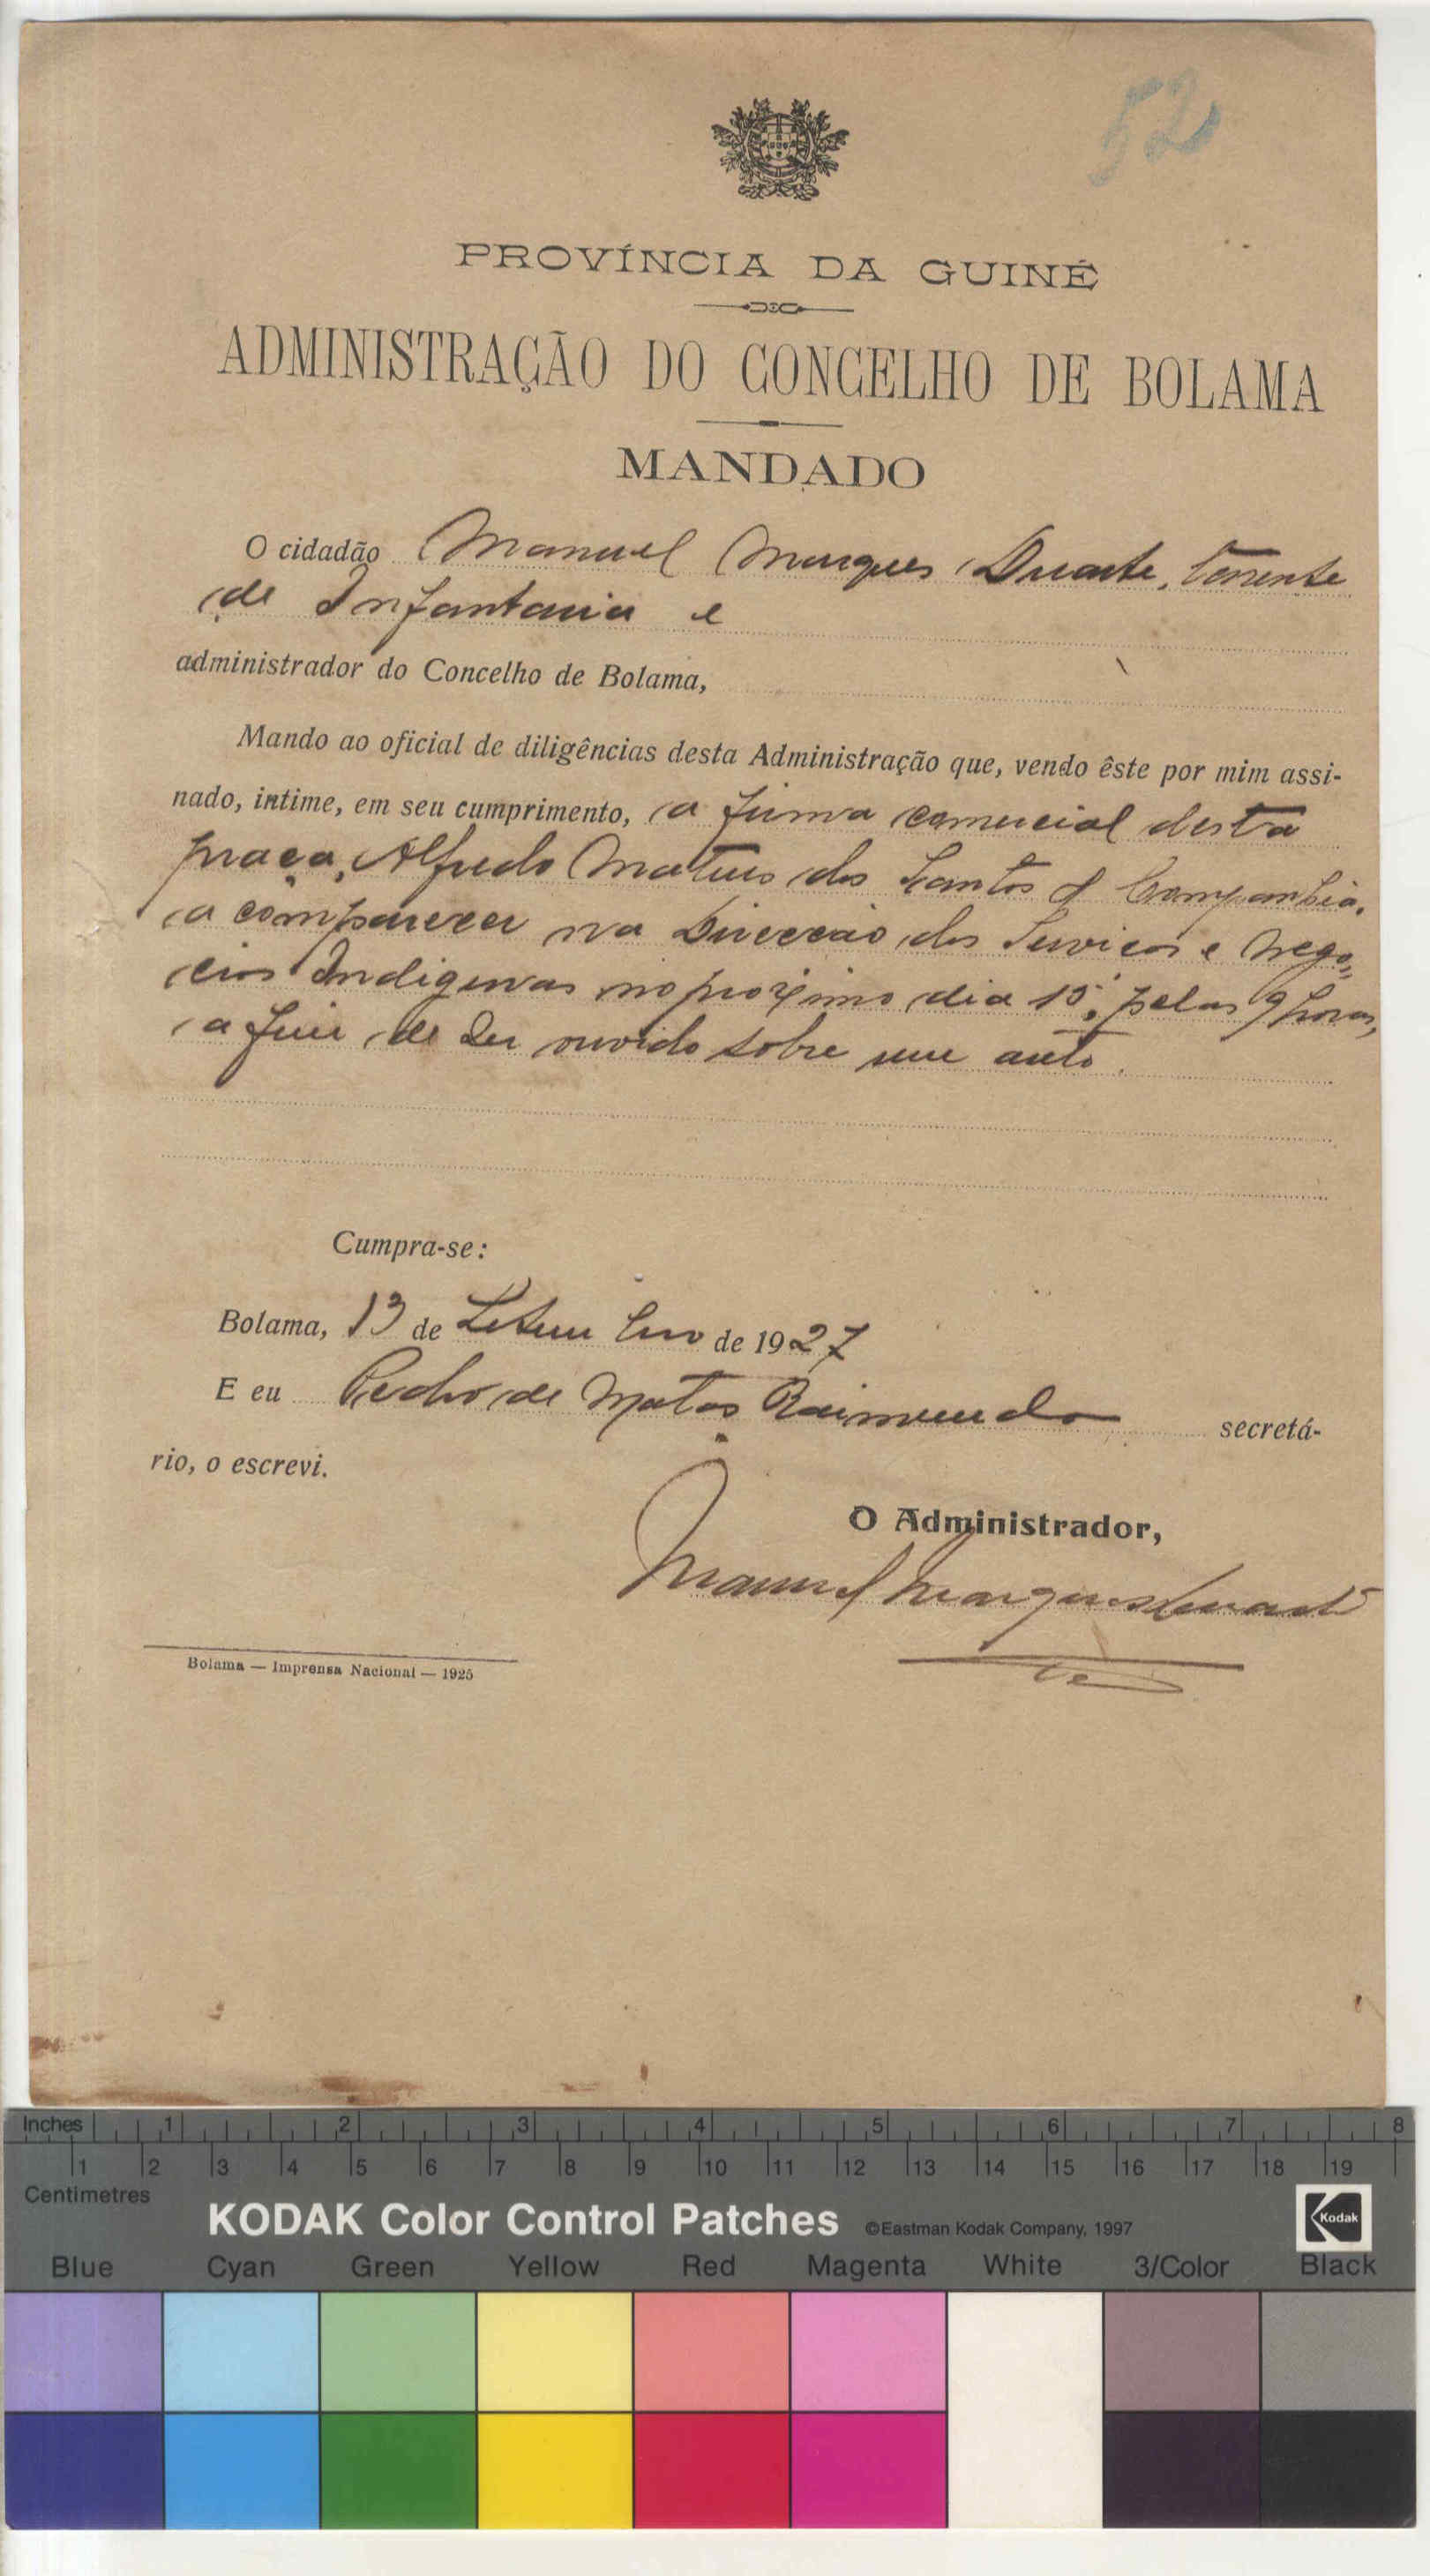 52
PROVÍNCIA DA GUINÉ
ADMINISTRAÇÃO DO CONCELHO DE BOLAMA
MANDADO
O cidadão Manuel Marques Duarte, Tenente
de Infantaria e
administrador do Concelho de Bolama,
Mando ao oficial de diligências desta Administração que, vendo êste por mim assi-
nado, intime, em seu cumprimento, a firma comercial desta
praça, Alfredo Mateus dos Santos & Companhia,
a comparecer na Direcção dos Serviços e Nego-
cios Indigenas no proximo dia 15, pelas 9 horas,
a fim de ser ouvido sobre um auto.
Cumpra-se:
Bolama, 13 de Setembro de 1927
E eu Pedro de Matos Raimundo secretá-
rio, o escrevi.
O Administrador,
Manuel Marques Duarte
Bolama — Imprensa Nacional — 1925
Inches 1 2 3 4 5 6 7 8
1 2 3 4 5 6 7 8 9 10 11 12 13 14 15 16 17 18 19
Centimetres
KODAK Color Control Patches ©Eastman Kodak Company, 1997 Kodak
Blue Cyan Green Yellow Red Magenta White 3/Color Black